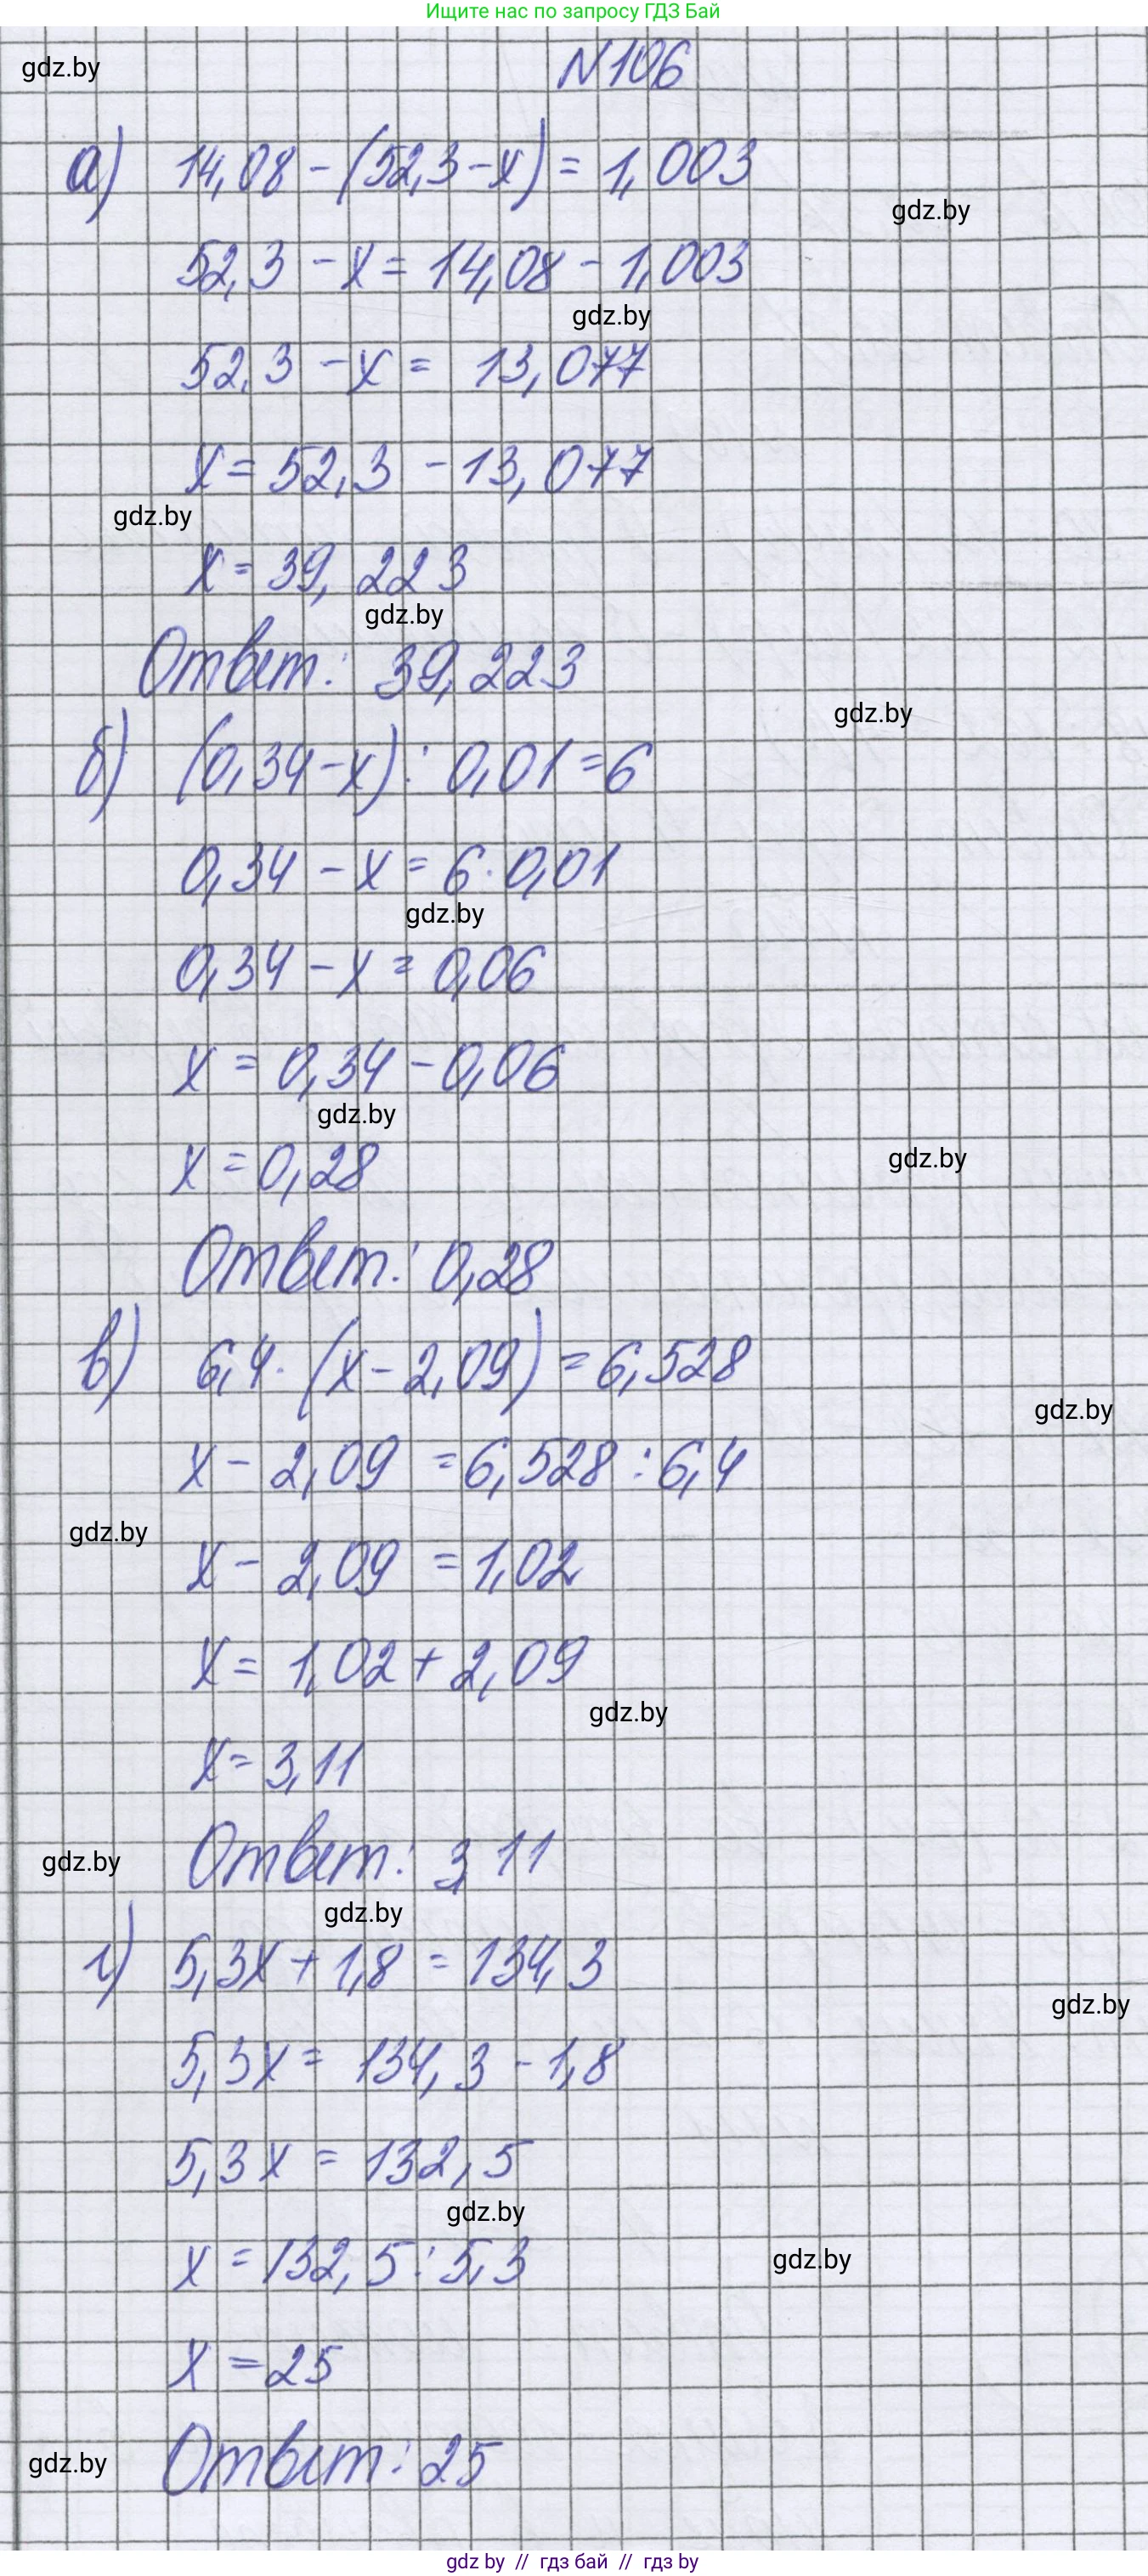 Ищите нас по запросу ГДЗ Бай
gdz.by
N106
а) 14,08 - (52,3 - x) = 1,003
gdz.by
52,3 - x = 14,08 - 1,003
gdz.by
52,3 - x = 13,077
x = 52,3 - 13,077
gdz.by
x = 39,223
gdz.by
Ответ: 39,223
gdz.by
б) (0,34 - x) : 0,01 = 6
0,34 - x = 6 · 0,01
gdz.by
0,34 - x = 0,06
x = 0,34 - 0,06
gdz.by
x = 0,28
gdz.by
Ответ: 0,28
в) 6,4 · (x - 2,09) = 6,528
gdz.by
x - 2,09 = 6,528 : 6,4
gdz.by
x - 2,09 = 1,02
x = 1,02 + 2,09
gdz.by
x = 3,11
Ответ: 3,11
gdz.by
gdz.by
г) 5,3x + 1,8 = 134,3
gdz.by
5,3x = 134,3 - 1,8
5,3x = 132,5
gdz.by
x = 132,5 : 5,3
gdz.by
x = 25
Ответ: 25
gdz.by
gdz by // гдз бай // гдз by